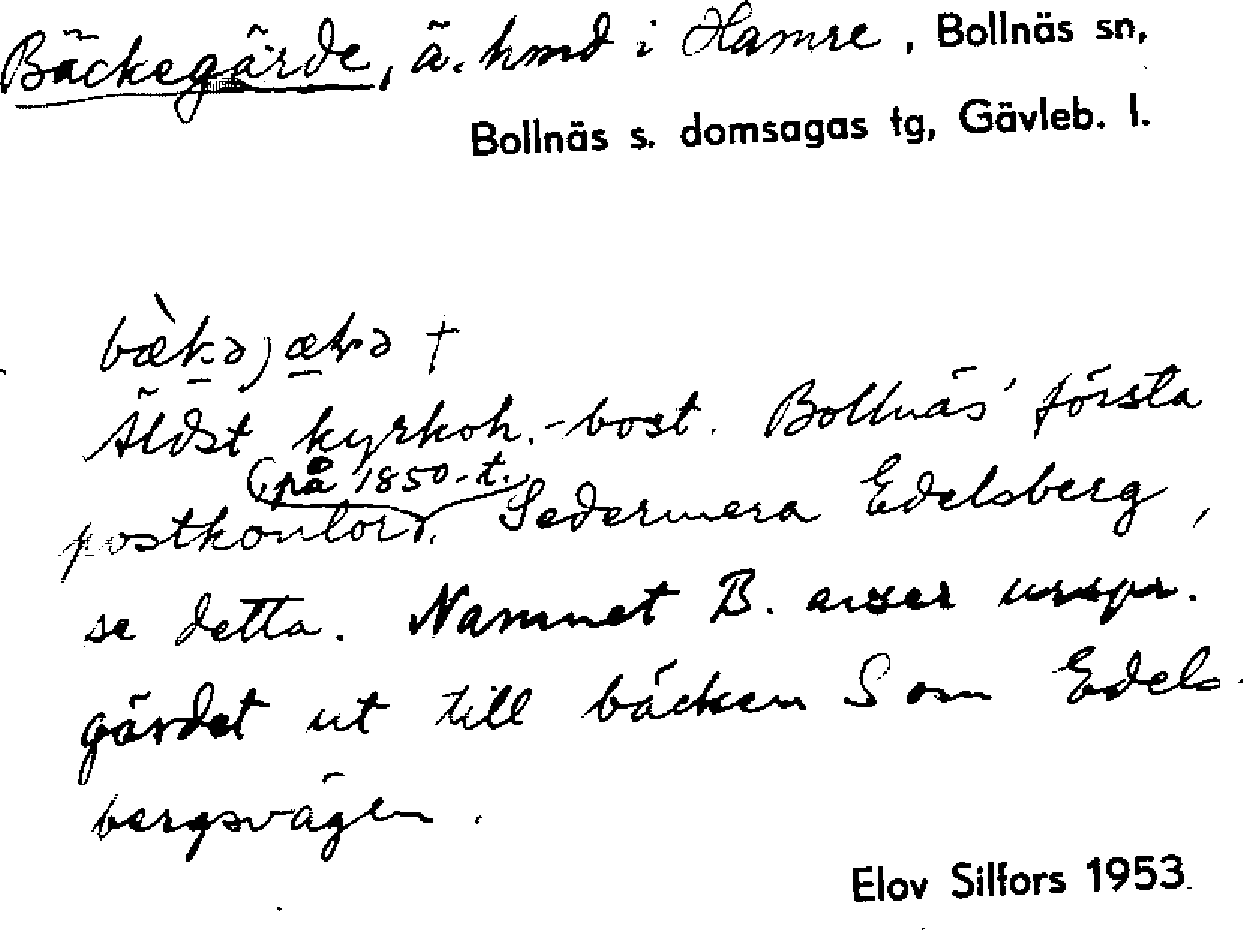 Bäckegärde, ä. hmd i Hamre, Bollnäs sn,
Bollnäs s. domsagas tg, Gävleb. l.
†
Äldst kyrkoh.-bost. Bollnäs' första
(på 1850-t.
postkontor). Sedermera Edelsberg,
se detta. Namnet B. avser urspr.
gärdet ut till bäcken S om Edels-
bergsvägen.
Elov Silfors 1953.